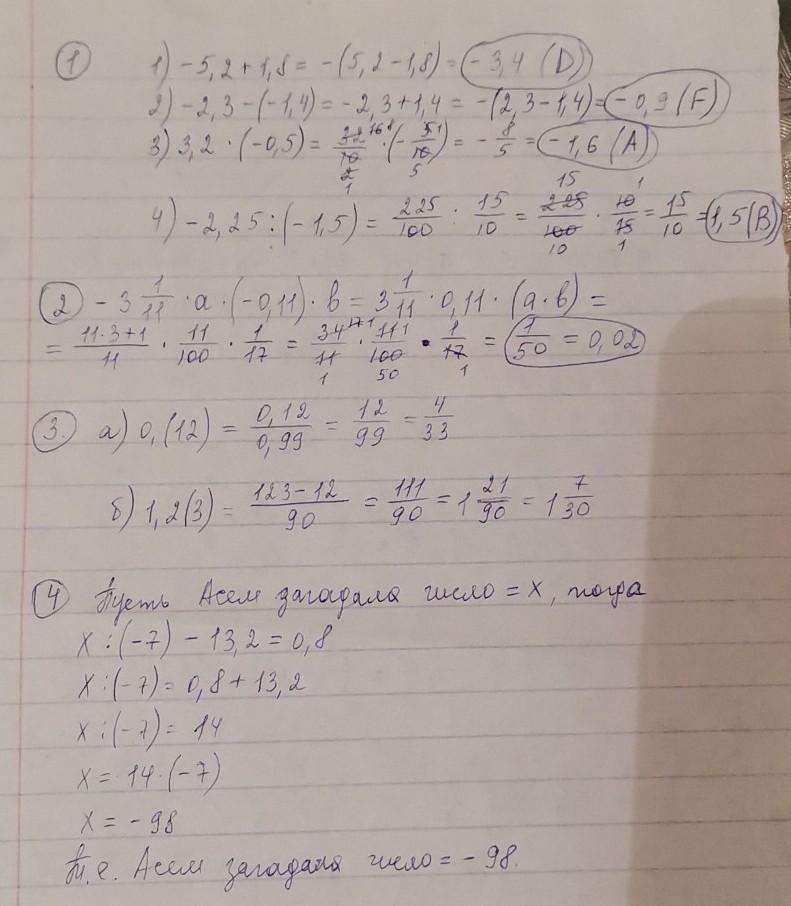 1) 1) -5,2+1,8 = -(5,2-1,8) = -3,4 (D)
2) -2,3-(-1,4) = -2,3+1,4 = -(2,3-1,4) = -0,9 (F)
3) 3,2 · (-0,5) = 32/10 · (-5/10) = -8/5 = -1,6 (A)
4) -2,25 : (-1,5) = 225/100 : 15/10 = 225/100 · 10/15 = 15/10 = 1,5 (B)
2) -3 1/11 · a · (-0,11) · b = 3 1/11 · 0,11 · (a·b) =
= (11·3+1)/11 · 11/100 · 1/17 = 34/11 · 11/100 · 1/17 = 1/50 = 0,02
3. a) 0,(12) = 0,12/0,99 = 12/99 = 4/33
б) 1,2(3) = (123-12)/90 = 111/90 = 1 21/90 = 1 7/30
4) Пусть Асем загадала число = x, тогда
x : (-7) - 13,2 = 0,8
x : (-7) = 0,8 + 13,2
x : (-7) = 14
x = 14 · (-7)
x = -98
Т.е. Асем загадала число = -98.